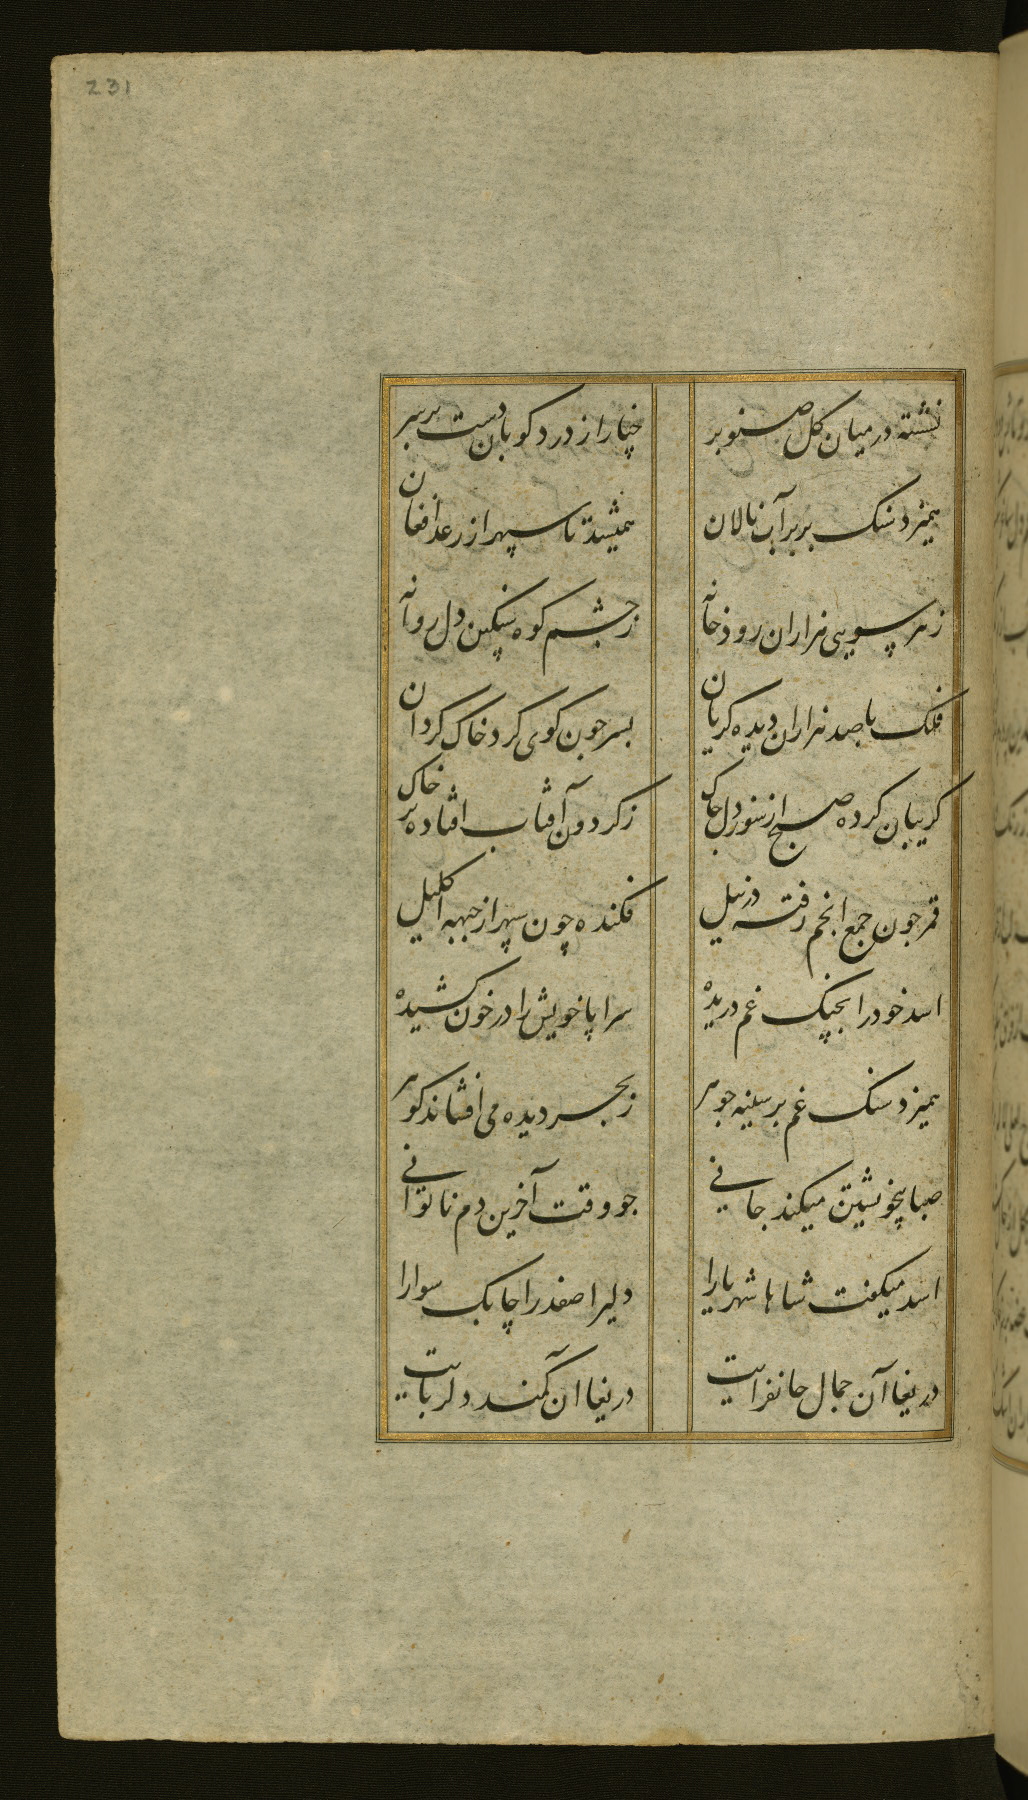 231
نشسته در میان کل صنوبر
چنار از درد کوبان دست بر سر
همیزد سنک بر بر آب نالان
همیشد تا سپهر از رعد افغان
ز هر سویی هزاران رودخانه
ز چشم کوه سنکین دل روانه
فلک با صد هزاران دیده کریان
بسر جون کوی کرد خاک کردان
کریبان کرده صبح از سوز دل جاک
ز کردون آفتاب افتاده بر خاک
قمر جون جمع انجم رفته در نیل
فکنده چون سپهر از جبهه اکلیل
اسد خود را بجنک غم دریده
سراپا خویش را در خون کشیده
همیزد سنک غم بر سینه جوهر
ز بحر دیده می افشاند کوهر
صبا بیخویشتن میکند جانی
جو وقت آخرین دم ناتوانی
اسد میکفت شاها شهریارا
دلیرا صفدرا چابک سوارا
دریغا آن جمال جانفزایت
دریغا ان کمند دلربایت